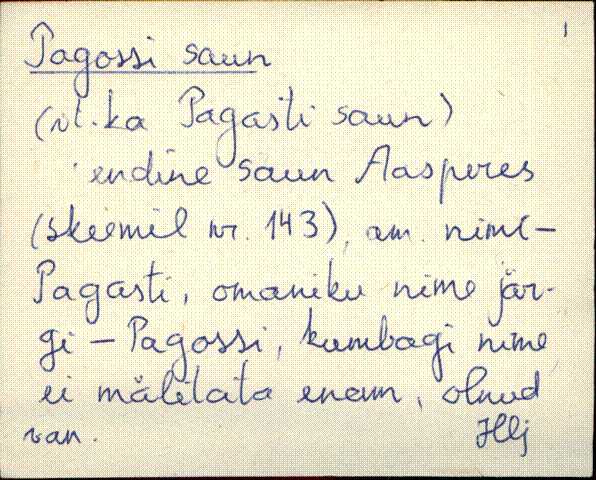 Pagossi saun
(vt. ka Pagasti saun)
endine saun Aasperes
(skeemil nr. 143), am. nime-
Pagasti, omaniku nime jär-
gi - Pagossi, kumbagi nime
ei mäletata enam, olnud
van.
Hlj